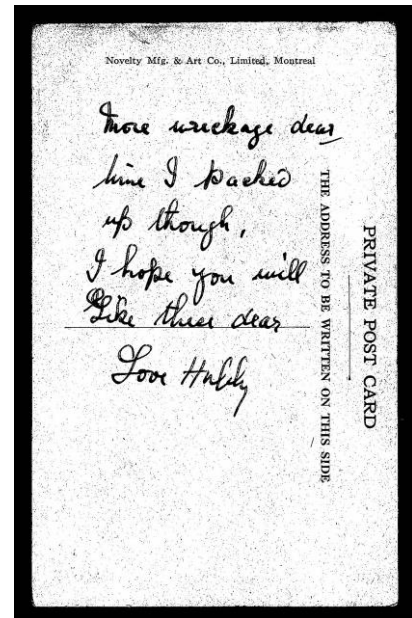 Novelty Mfg. & Art Co., Limited, Montreal
More wreckage dear
hine I packed
up though,
I hope you will
Like these dear
Love Hubby
THE ADDRESS TO BE WRITTEN ON THIS SIDE
PRIVATE POST CARD